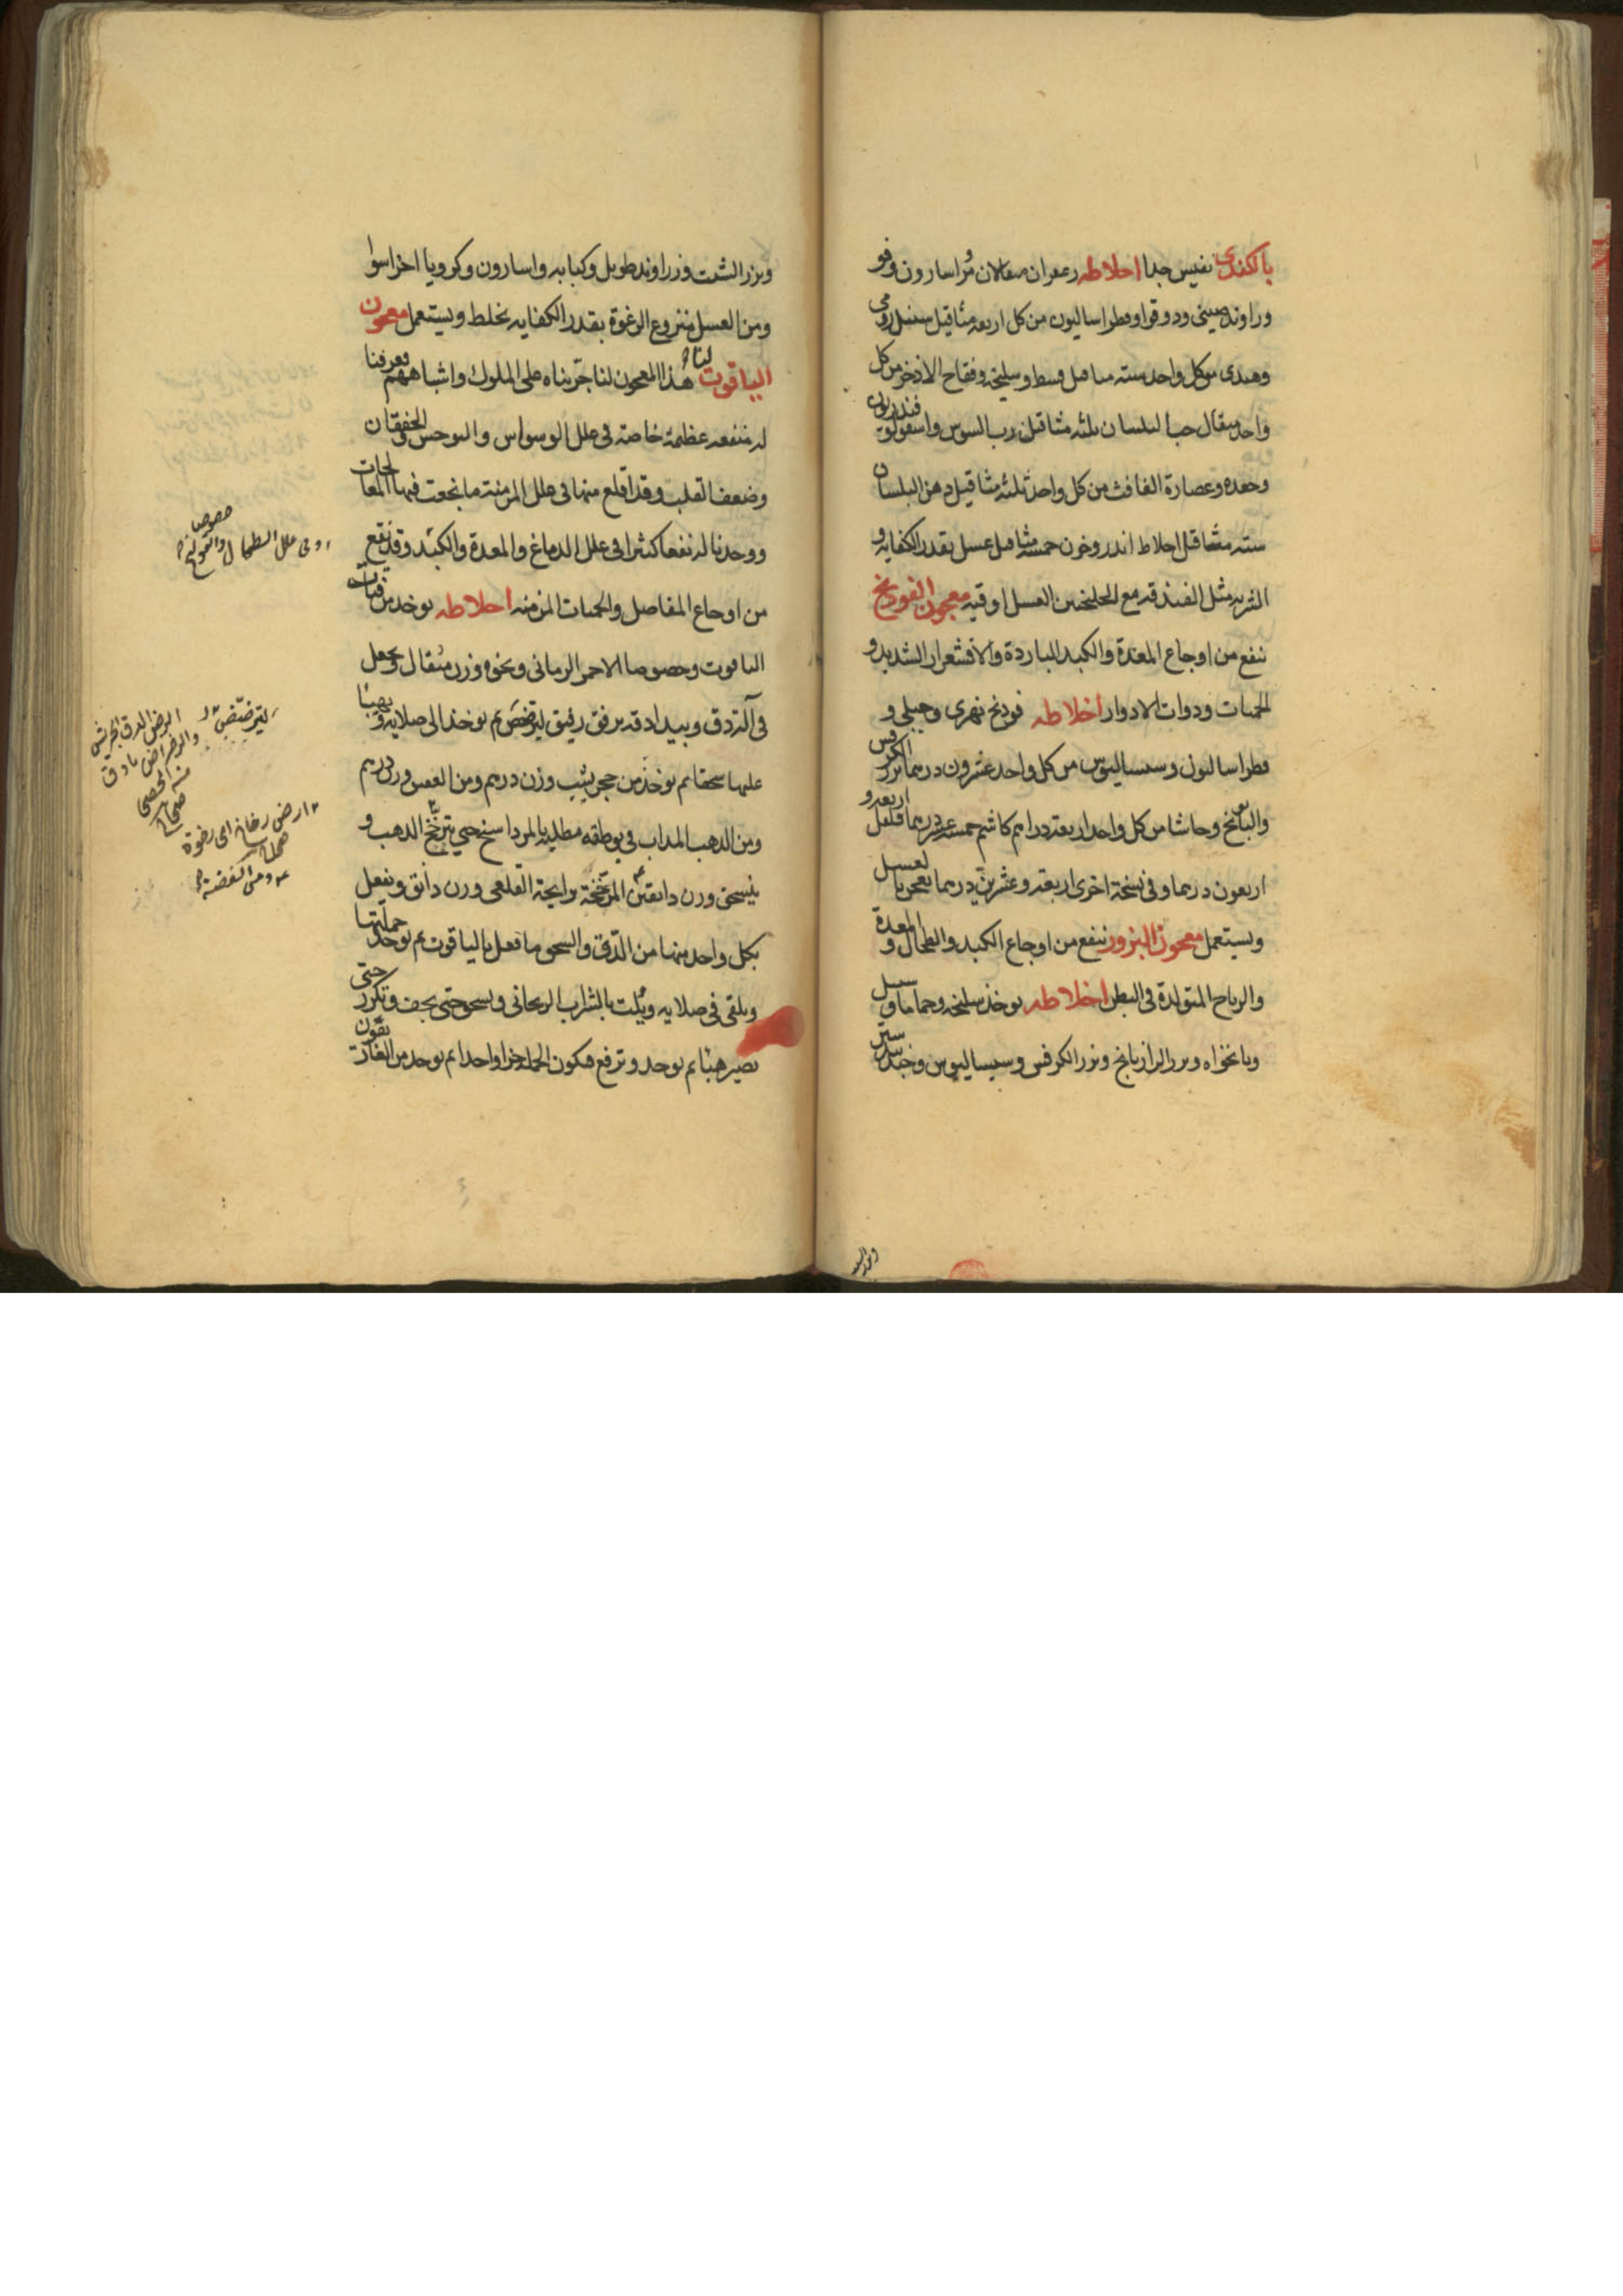 بالكندى نفيس جدا اخلاطه زعفران مثقالان مر اسارون وفو
وراوند صينى ودوقوا وفطراساليون من كل اربعه مثاقيل سنبل رومى
وهندى من كل واحد سته مثاقيل قسط وسليخه وفقاح الاذخر من كل
واحد مثقال حب البلسان ثلثه مثاقيل رب السوس واسقولوقندريون
وجعده وعصارة الغافث من كل واحد ثلثه مثاقيل دهن البلسان
سته مثاقيل اخلاط اندروخرن خمسه مثاقيل عسل بقدر الكفايه و
الشربه مثل الفندقه مع الجلنجبين العسل اوقيه معجون الفودنج
ينفع من اوجاع المعدة والكبد الباردة والاقشعرار الشديد و
الحميات ذوات الادوار اخلاطه فودنج نهرى وجبلى و
فطراساليون وسيساليوس من كل واحد عشرون درهما بزر الكرفس
والبابونج وحاشا من كل واحد اربعة دراهم كاشم خمسه عشر درهما فلفل اربعه و
اربعون درهما وفى نسخة اخرى اربعه وعشرين درهما يعجن بالعسل
ويستعمل معجون البزور ينفع من اوجاع الكبد والطحال والمعدة و
والرياح المتولدة فى البطن اخلاطه يوخذ سليخه وحماما وسنبل
ونانخواه وبزر الرازيانج وبزر الكرفس وسيساليوس وجندبيدستر
وبزر الشبت وزراوند طويل وكبابه واسارون وكرويا اجزا سوا
ومن العسل منزوع الرغوة بقدر الكفايه يخلط ويستعمل معجون
الياقوت لنا هذا المعجون لنا جربناه على الملوك واشباههم فعرفنا
له منفعه عظيمة خاصة فى علل الوسواس والتوحش والخفقان
وضعف القلب وقد اقلع منها فى علل المزمنة ما نجعت فيها المعالجات
ووجدنا له نفعا كثيرا فى علل الدماغ والمعدة والكبد وقد ينفع
من اوجاع المفاصل والحميات المزمنه اخلاطه يوخذ من فتات
الياقوت وخصوصا الاحمر الرمانى ونحوه وزن مثقال ويجعل
فى آلة دق ويبدا دقه برفق رفيق ليترضض ثم يوخذ الى صلايه ويهبا
عليها سحقا ثم يوخذ من حجر يشب وزن درهم ومن العقيق وزن درهم
ومن الذهب المذاب فى بوطقه مطليه بالمرداسنج حتى يترنخ الذهب و
ينسحق وزن دانقين المرنخة برايحة القلعى وزن دانق ويفعل
بكل واحد منها من الدق والسحق ما فعل بالياقوت ثم يوخذ جملتها
ويلقى فى صلايه ويلت بالشراب الريحانى ويسحق حتى يجف ويكرر حتى
يصير هباء ثم يوخذ وترفع فيكون الجمله جزا واحدا ثم يوخذ من الغاريقون
وفى علل الطحال والقولنج خصوصا
ليترضض
الرض الدق الجريش
صحاح
ارض رخاخ اى رخوة
صحاح
ومن الفضة